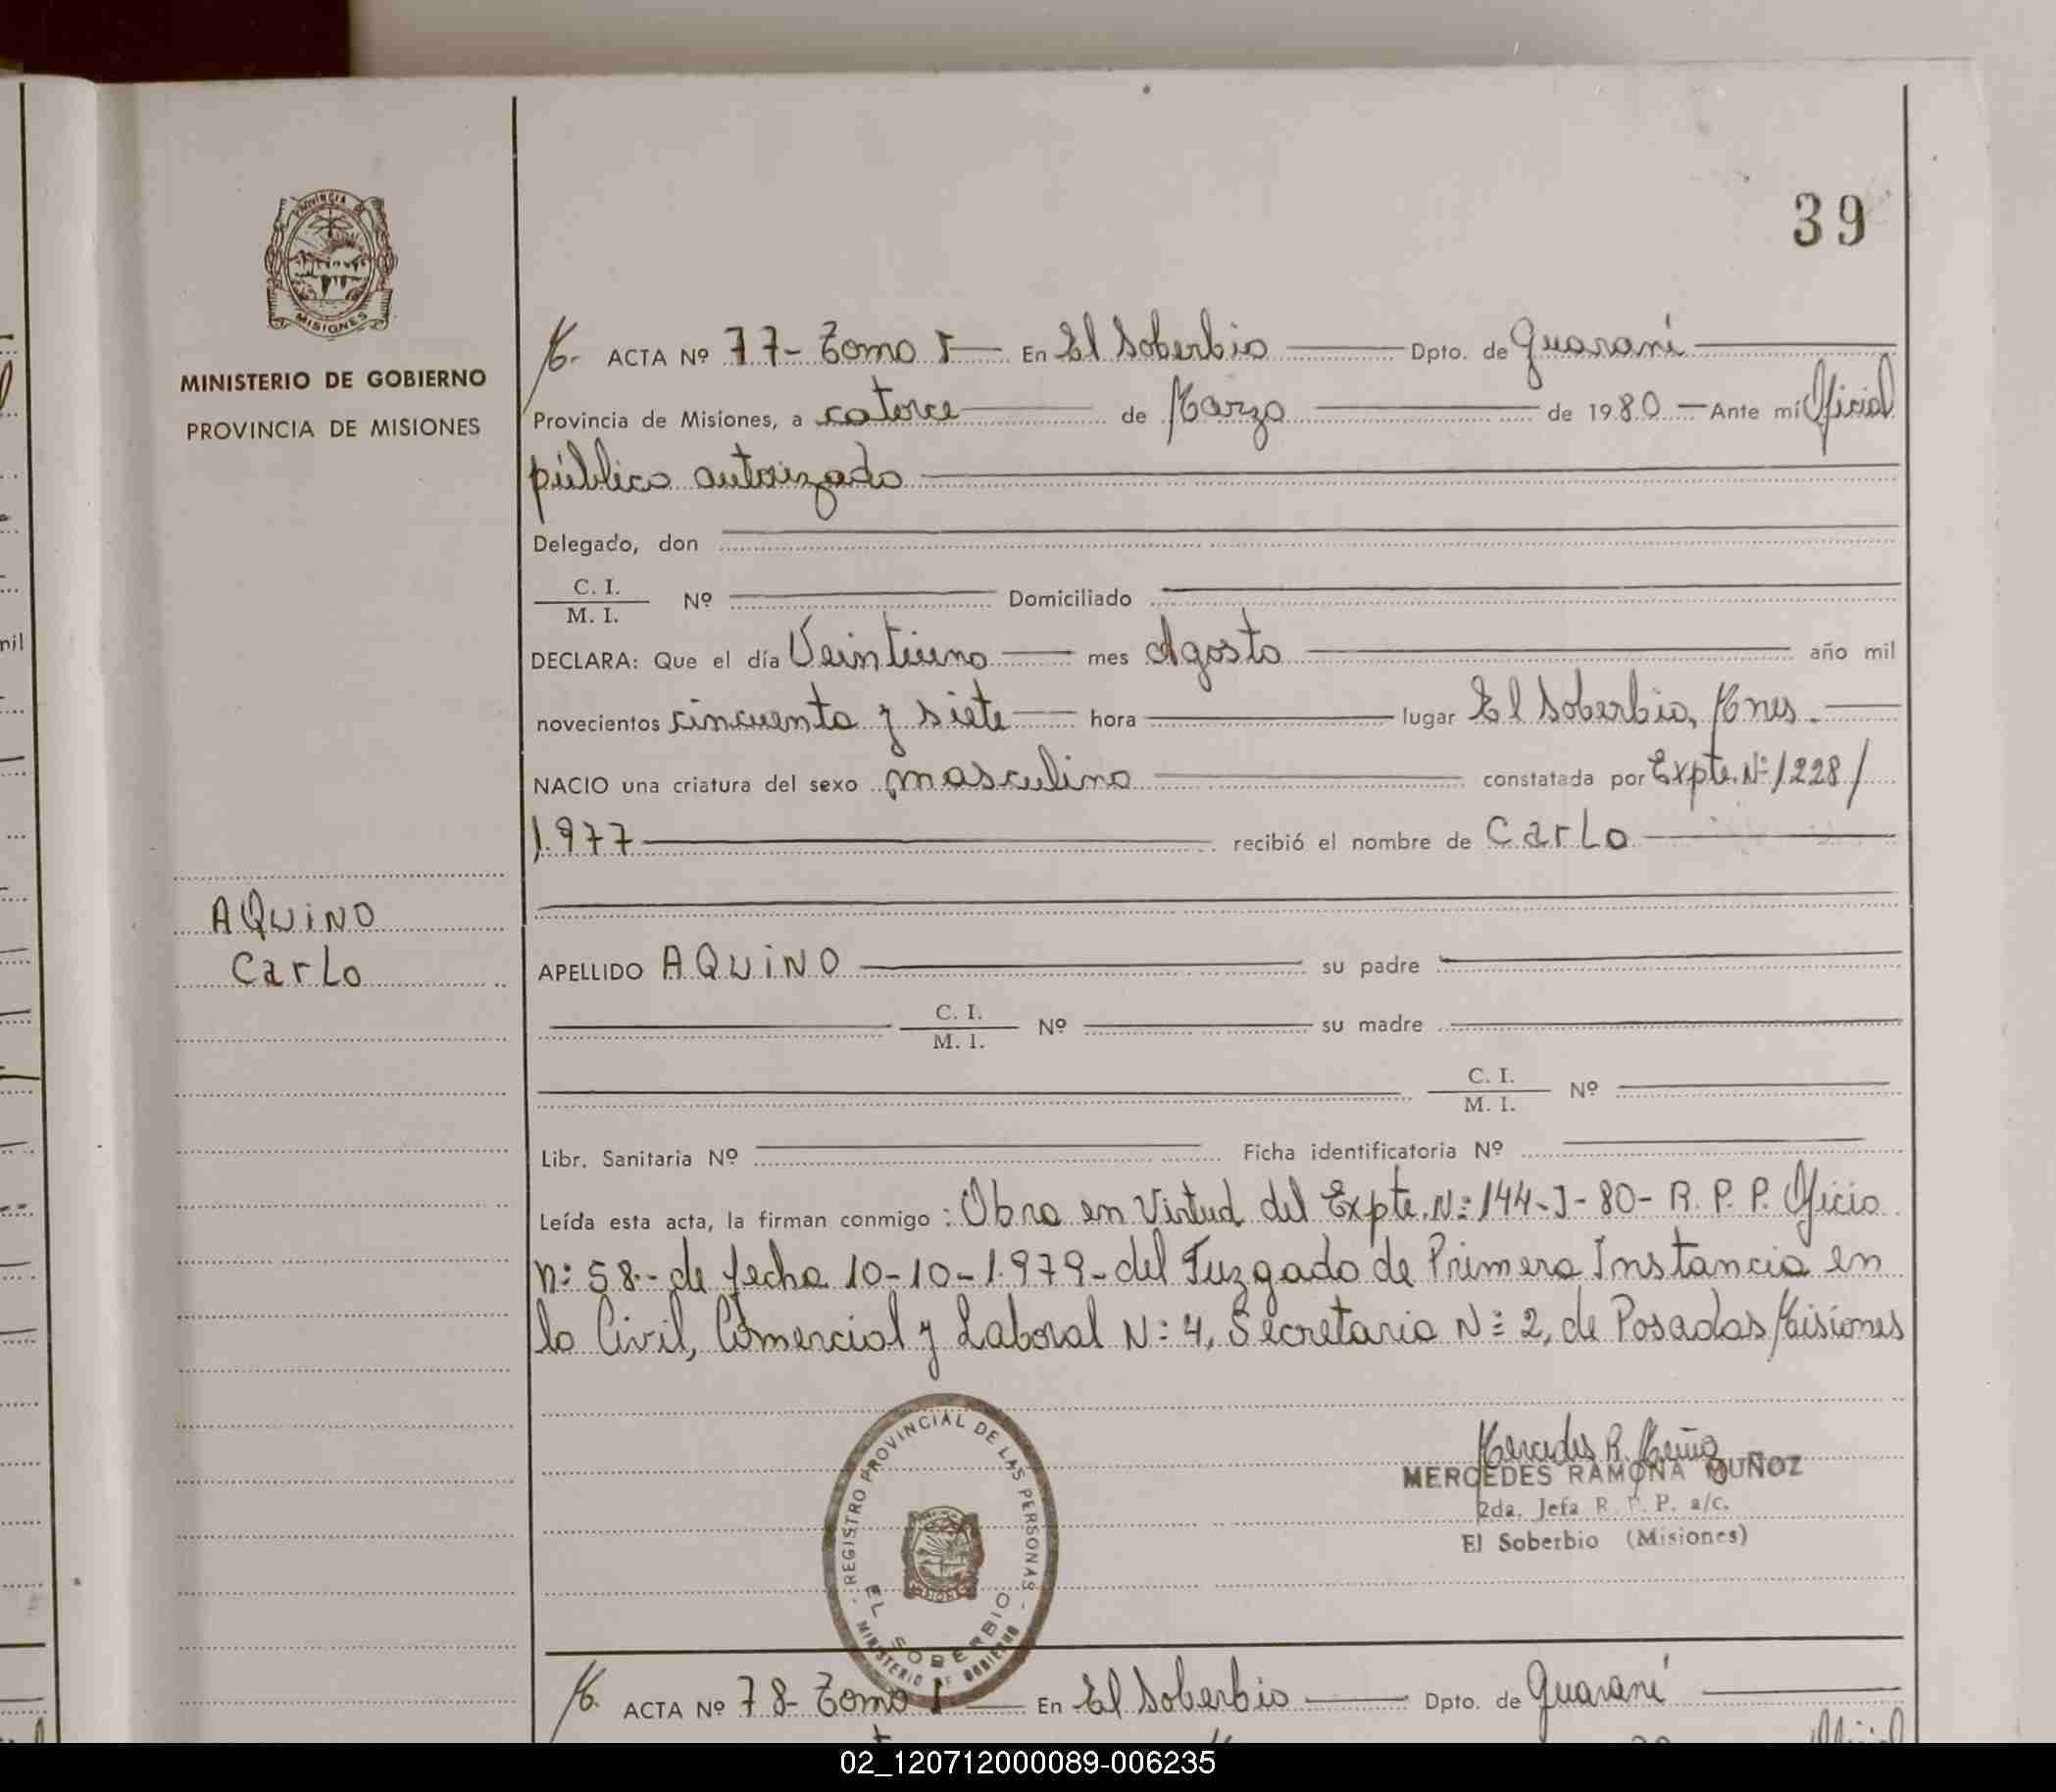 39
PROVINCIA DE
MISIONES
MINISTERIO DE GOBIERNO
PROVINCIA DE MISIONES
M. ACTA Nº 77- Tomo I En El Soberbio Dpto. de Guaraní
Provincia de Misiones, a catorce de Marzo de 1980 Ante mí Oficial
público autorizado
Delegado, don
C. I.
M. I. Nº Domiciliado
DECLARA: Que el día Veintiuno mes Agosto año mil
novecientos cincuenta y siete hora lugar El Soberbio, Mnes.
NACIO una criatura del sexo masculino constatada por Expte. Nº 1228/
1.977 recibió el nombre de Carlo
AQUINO
Carlo
APELLIDO AQUINO su padre
C. I.
M. I. Nº su madre
C. I.
M. I. Nº
Libr. Sanitaria Nº Ficha identificatoria Nº
Leída esta acta, la firman conmigo: Obra en Virtud del Expte. Nº 144-J-80- R. P. P. Oficio
nº 58.- de fecha 10-10-1.979- del Juzgado de Primera Instancia en
lo Civil, Comercial y Laboral Nº 4, Secretaria Nº 2, de Posadas Misiones
REGISTRO PROVINCIAL DE LAS PERSONAS
EL SOBERBIO
MINISTERIO DE GOBIERNO
Mercedes R. Muñoz
MERCEDES RAMONA MUÑOZ
2da. Jefa R. P. P. a/c.
El Soberbio (Misiones)
M. ACTA Nº 78- Tomo I En El Soberbio Dpto. de Guaraní
mil
02_120712000089-006235